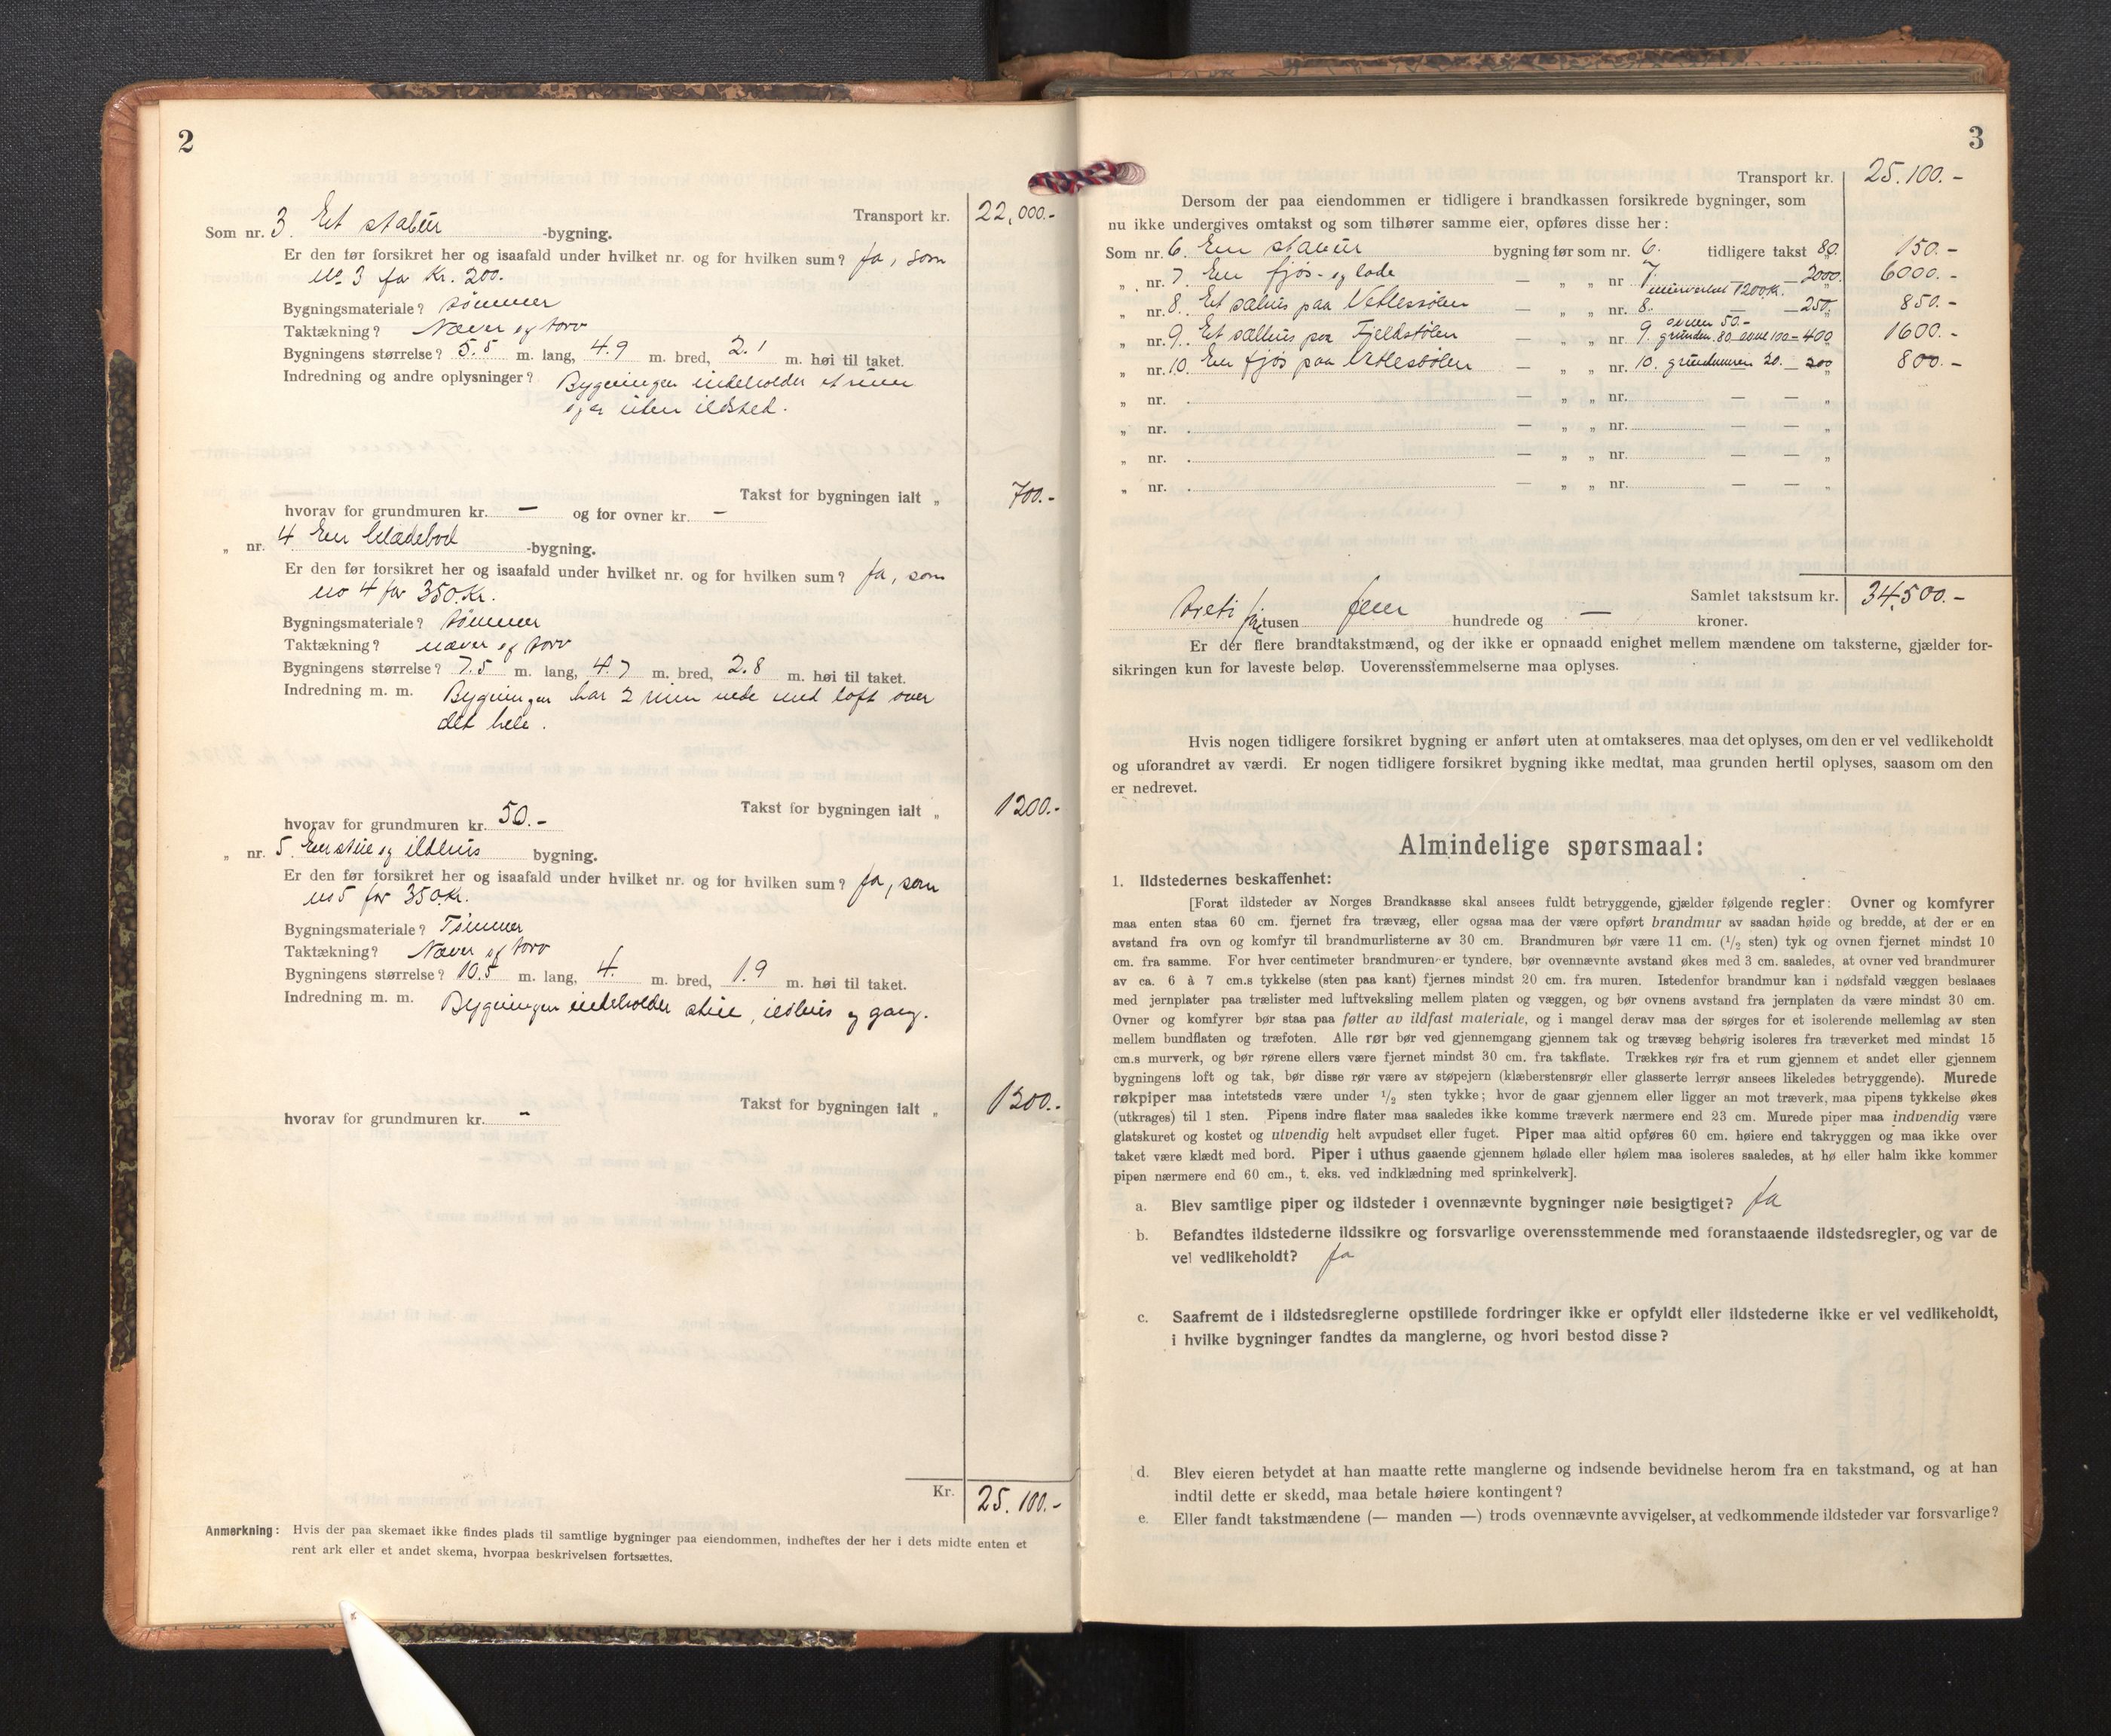 2
Transport kr. 22,000.-
Som nr. 3. Et stabur -bygning.
Er den før forsikret her og isaafald under hvilket nr. og for hvilken sum? Ja, som
No. 3 for Kr. 200.
Bygningsmateriale? tømmer
Taktækning? Næver og torv
Bygningens størrelse? 5.5 m. lang, 4.9 m. bred, 2.1 m. høi til taket.
Indredning og andre oplysninger? Bygningen indeholder et rum
og er uten ildsted.
Takst for bygningen ialt „ 700.-
hvorav for grundmuren kr. — og for ovner kr. —
„ nr. 4 En klædebod -bygning.
Er den før forsikret her og isaafald under hvilket nr. og for hvilken sum? Ja, som
no 4 for 350.Kr.
Bygningsmateriale? tømmer
Taktækning? næver og torv
Bygningens størrelse? 7.5 m. lang, 4.7 m. bred, 2.8 m. høi til taket.
Indredning m. m. Bygningen har 2 rum nede med loft over
det hele.
Takst for bygningen ialt „ 1200.-
hvorav for grundmuren kr. 50.-
„ nr. 5. En stue og ildhus bygning.
Er den før forsikret her og isaafald under hvilket nr. og for hvilken sum? Ja, som
no 5 for 350.Kr.
Bygningsmateriale? Tømmer
Taktækning? Næver og torv
Bygningens størrelse? 10.5 m. lang, 4. m. bred, 1.9 m. høi til taket.
Indredning m. m. Bygningen indeholder stue, ildhus og gang.
Takst for bygningen ialt „ 1200.-
hvorav for grundmuren kr. —
Kr. 25.100.-
Anmerkning: Hvis der paa skemaet ikke findes plads til samtlige bygninger paa eiendommen, indheftes der her i dets midte enten et
rent ark eller et andet skema, hvorpaa beskrivelsen fortsættes.
3
Transport kr. 25.100.-
Dersom der paa eiendommen er tidligere i brandkassen forsikrede bygninger, som
nu ikke undergives omtakst og som tilhører samme eier, opføres disse her:
Som nr. 6. En stabur bygning før som nr. 6. tidligere takst 80. 150.-
„ nr. 7. En fjøs- og lade — „ „ nr 7. — 2000. 6000.-
murverket 1200 Kr.
„ nr. 8. Et sælhus paa Vetlestølen — „ „ nr. 8. — 250. 850.-
ovnen 50.-
„ nr. 9. Et sælhus paa Fjeldstølen — „ „ nr 9. grunden 80 ovne 100 — 400 1600.-
„ nr. 10. En fjøs paa Vetlestølen — „ „ nr. 10. grundmuren 20. — 200 800.-
„ nr. . — „ „ nr. — — „
„ nr. . — „ „ nr. — — „
„ nr. . — „ „ nr. — — „
„ nr. . — „ „ nr. — — „
Samlet takstsum kr. 34.500.-
tusen fem hundrede og — kroner.
Er der flere brandtakstmænd, og der ikke er opnaadd enighet mellem mændene om taksterne, gjælder for-
sikringen kun for laveste beløp. Uoverensstemmelserne maa oplyses.
Hvis nogen tidligere forsikret bygning er anført uten at omtakseres, maa det oplyses, om den er vel vedlikeholdt
og uforandret av værdi. Er nogen tidligere forsikret bygning ikke medtat, maa grunden hertil oplyses, saasom om den
er nedrevet.
Almindelige spørsmaal:
1. Ildstedernes beskaffenhet:
[Forat ildsteder av Norges Brandkasse skal ansees fuldt betryggende, gjælder følgende regler: Ovner og komfyrer
maa enten staa 60 cm. fjernet fra trævæg, eller ogsaa maa der være opført brandmur av saadan høide og bredde, at der er en
avstand fra ovn og komfyr til brandmurlisterne av 30 cm. Brandmuren bør være 11 cm. (1/2 sten) tyk og ovnen fjernet mindst 10
cm. fra samme. For hver centimeter brandmuren er tyndere, bør ovennævnte avstand økes med 3 cm. saaledes, at ovner ved brandmurer
av ca. 6 à 7 cm.s tykkelse (sten paa kant) fjernes mindst 20 cm. fra muren. Istedenfor brandmur kan i nødsfald væggen beslaaes
med jernplater paa trælister med luftveksling mellem platen og væggen, og bør ovnens avstand fra jernplaten da være mindst 30 cm.
Ovner og komfyrer bør staa paa føtter av ildfast materiale, og i mangel derav maa der sørges for et isolerende mellemlag av sten
mellem bundflaten og træfoten. Alle rør bør ved gjennemgang gjennem tak og trævæg behørig isoleres fra træverket med mindst 15
cm.s murverk, og bør rørene ellers være fjernet mindst 30 cm. fra takflate. Trækkes rør fra et rum gjennem et andet eller gjennem
bygningens loft og tak, bør disse rør være av støpejern (klæberstensrør eller glasserte lerrør ansees likeledes betryggende). Murede
røkpiper maa intetsteds være under 1/2 sten tykke; hvor de gaar gjennem eller ligger an mot træverk, maa pipens tykkelse økes
(utkrages) til 1 sten. Pipens indre flater maa saaledes ikke komme træverk nærmere end 23 cm. Murede piper maa indvendig være
glatskuret og kostet og utvendig helt avpudset eller fuget. Piper maa altid opføres 60 cm. høiere end takryggen og maa ikke over
taket være klædt med bord. Piper i uthus gaaende gjennem hølade eller hølem maa isoleres saaledes, at hø eller halm ikke kommer
pipen nærmere end 60 cm., t. eks. ved indklædning med sprinkelverk].
a. Blev samtlige piper og ildsteder i ovennævnte bygninger nøie besigtiget? Ja
b. Befandtes ildstederne ildssikre og forsvarlige overensstemmende med foranstaaende ildstedsregler, og var de
vel vedlikeholdt? Ja
c. Saafremt de i ildstedsreglerne opstillede fordringer ikke er opfyldt eller ildstederne ikke er vel vedlikeholdt,
i hvilke bygninger fandtes da manglerne, og hvori bestod disse?
d. Blev eieren betydet at han maatte rette manglerne og indsende bevidnelse herom fra en takstmand, og at han
indtil dette er skedd, maa betale høiere kontingent?
e. Eller fandt takstmændene (— manden —) trods ovennævnte avvigelser, at vedkommende ildsteder var forsvarlige?